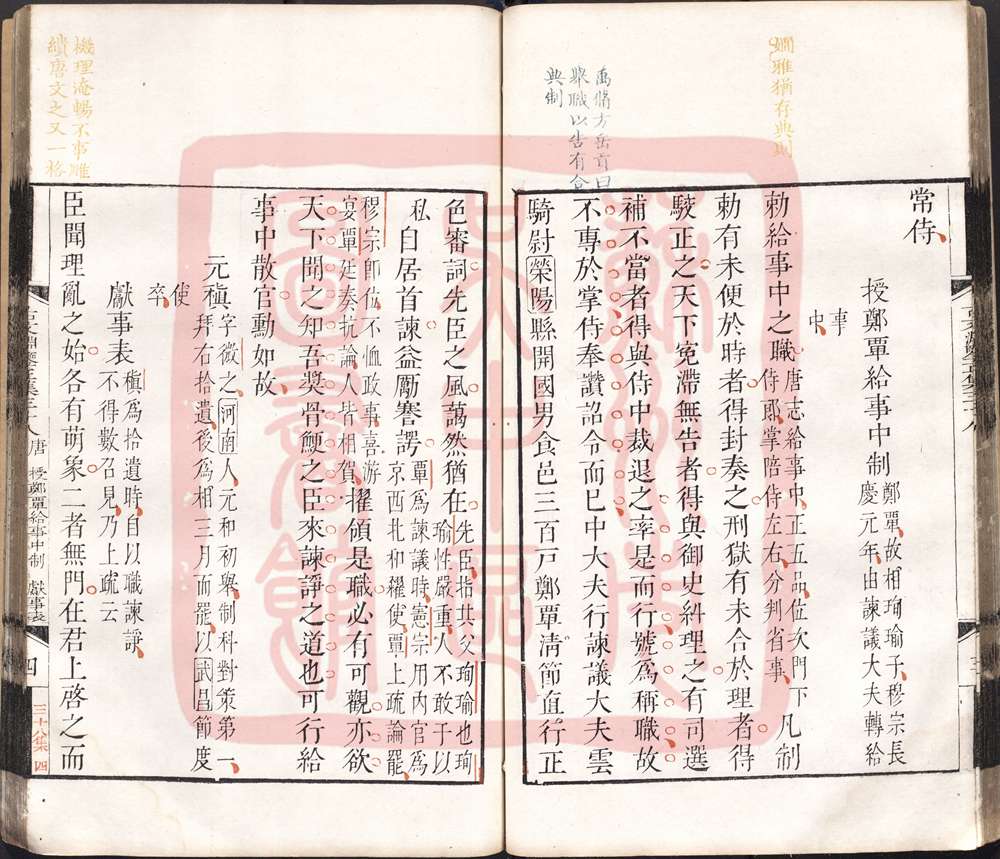 嫺雅猶存典則
禹偁方岳貢曰
舉職以告有合
典制
常侍
授鄭覃給事中制鄭覃故相珣瑜子穆宗長
慶元年由諫議大夫轉給
事
中
勅給事中之職唐志給事中正五品位次門下
侍郎掌陪侍左右分判省事
凡制
勅有未便於時者得封奏之刑獄有未合於理者得
駮正之天下寃滯無告者得與御史糾理之有司選
補不當者得與侍中裁退之率是而行號為稱職故
不專於掌侍奉讚詔令而已中大夫行諫議大夫雲
騎尉滎陽縣開國男食邑三百戸鄭覃淸節直行正
機理淹暢不事雕
繢唐文之又一格
色審詞先臣之風藹然猶在先臣指其父珣瑜也珣
瑜性嚴重人不敢于以
私
自居首諫益勵謇諤覃為諫議時憲宗用內官為
京西北和糴使覃上疏論罷
穆宗卽位不恤政事喜游
宴覃廷奏抗論人皆相賀
擢領是職必有可觀亦欲
天下聞之知吾獎骨鯁之臣來諫諍之道也可行給
事中散官勳如故
元稹字微之河南人元和初舉制科對策第一
拜右拾遺後為相三月而罷以武昌節度
使
卒
獻事表稹為拾遺時自以職諫諍
不得數召見乃上疏云
臣聞理亂之始各有萌象二者無門在君上啓之而
唐 授鄭覃給事中制 獻事表
四
三十八集 四